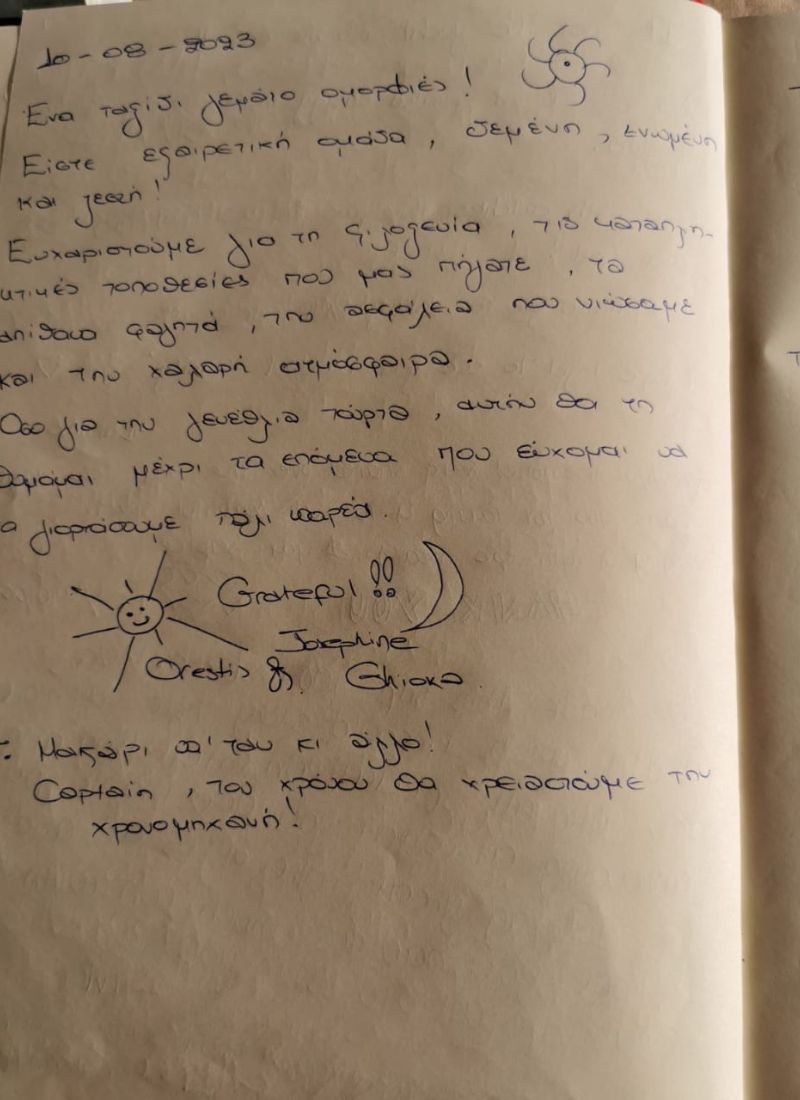 10-08-2023
Ένα ταξίδι γεμάτο ομορφιές!
Είστε εξαιρετική ομάδα, δεμένη, ενωμένη
και ζεστή!
Ευχαριστούμε για τη φιλοξενία, τις καταπλη-
κτικές τοποθεσίες που μας πήγατε, τα
απίθανα φαγητά, την ασφάλεια που νιώσαμε
και την χαλαρή ατμόσφαιρα.
Όσο για την γενέθλια τούρτα, αυτήν θα τη
θυμάμαι μέχρι τα επόμενα που εύχομαι να
α γιορτάσουμε πάλι παρέα.
Grateful !!
Josephine
Orestis &
: Μακάρι απ' του κι άλλο!
Captain, του χρόνου θα χρειαστούμε την
χρονομηχανή!